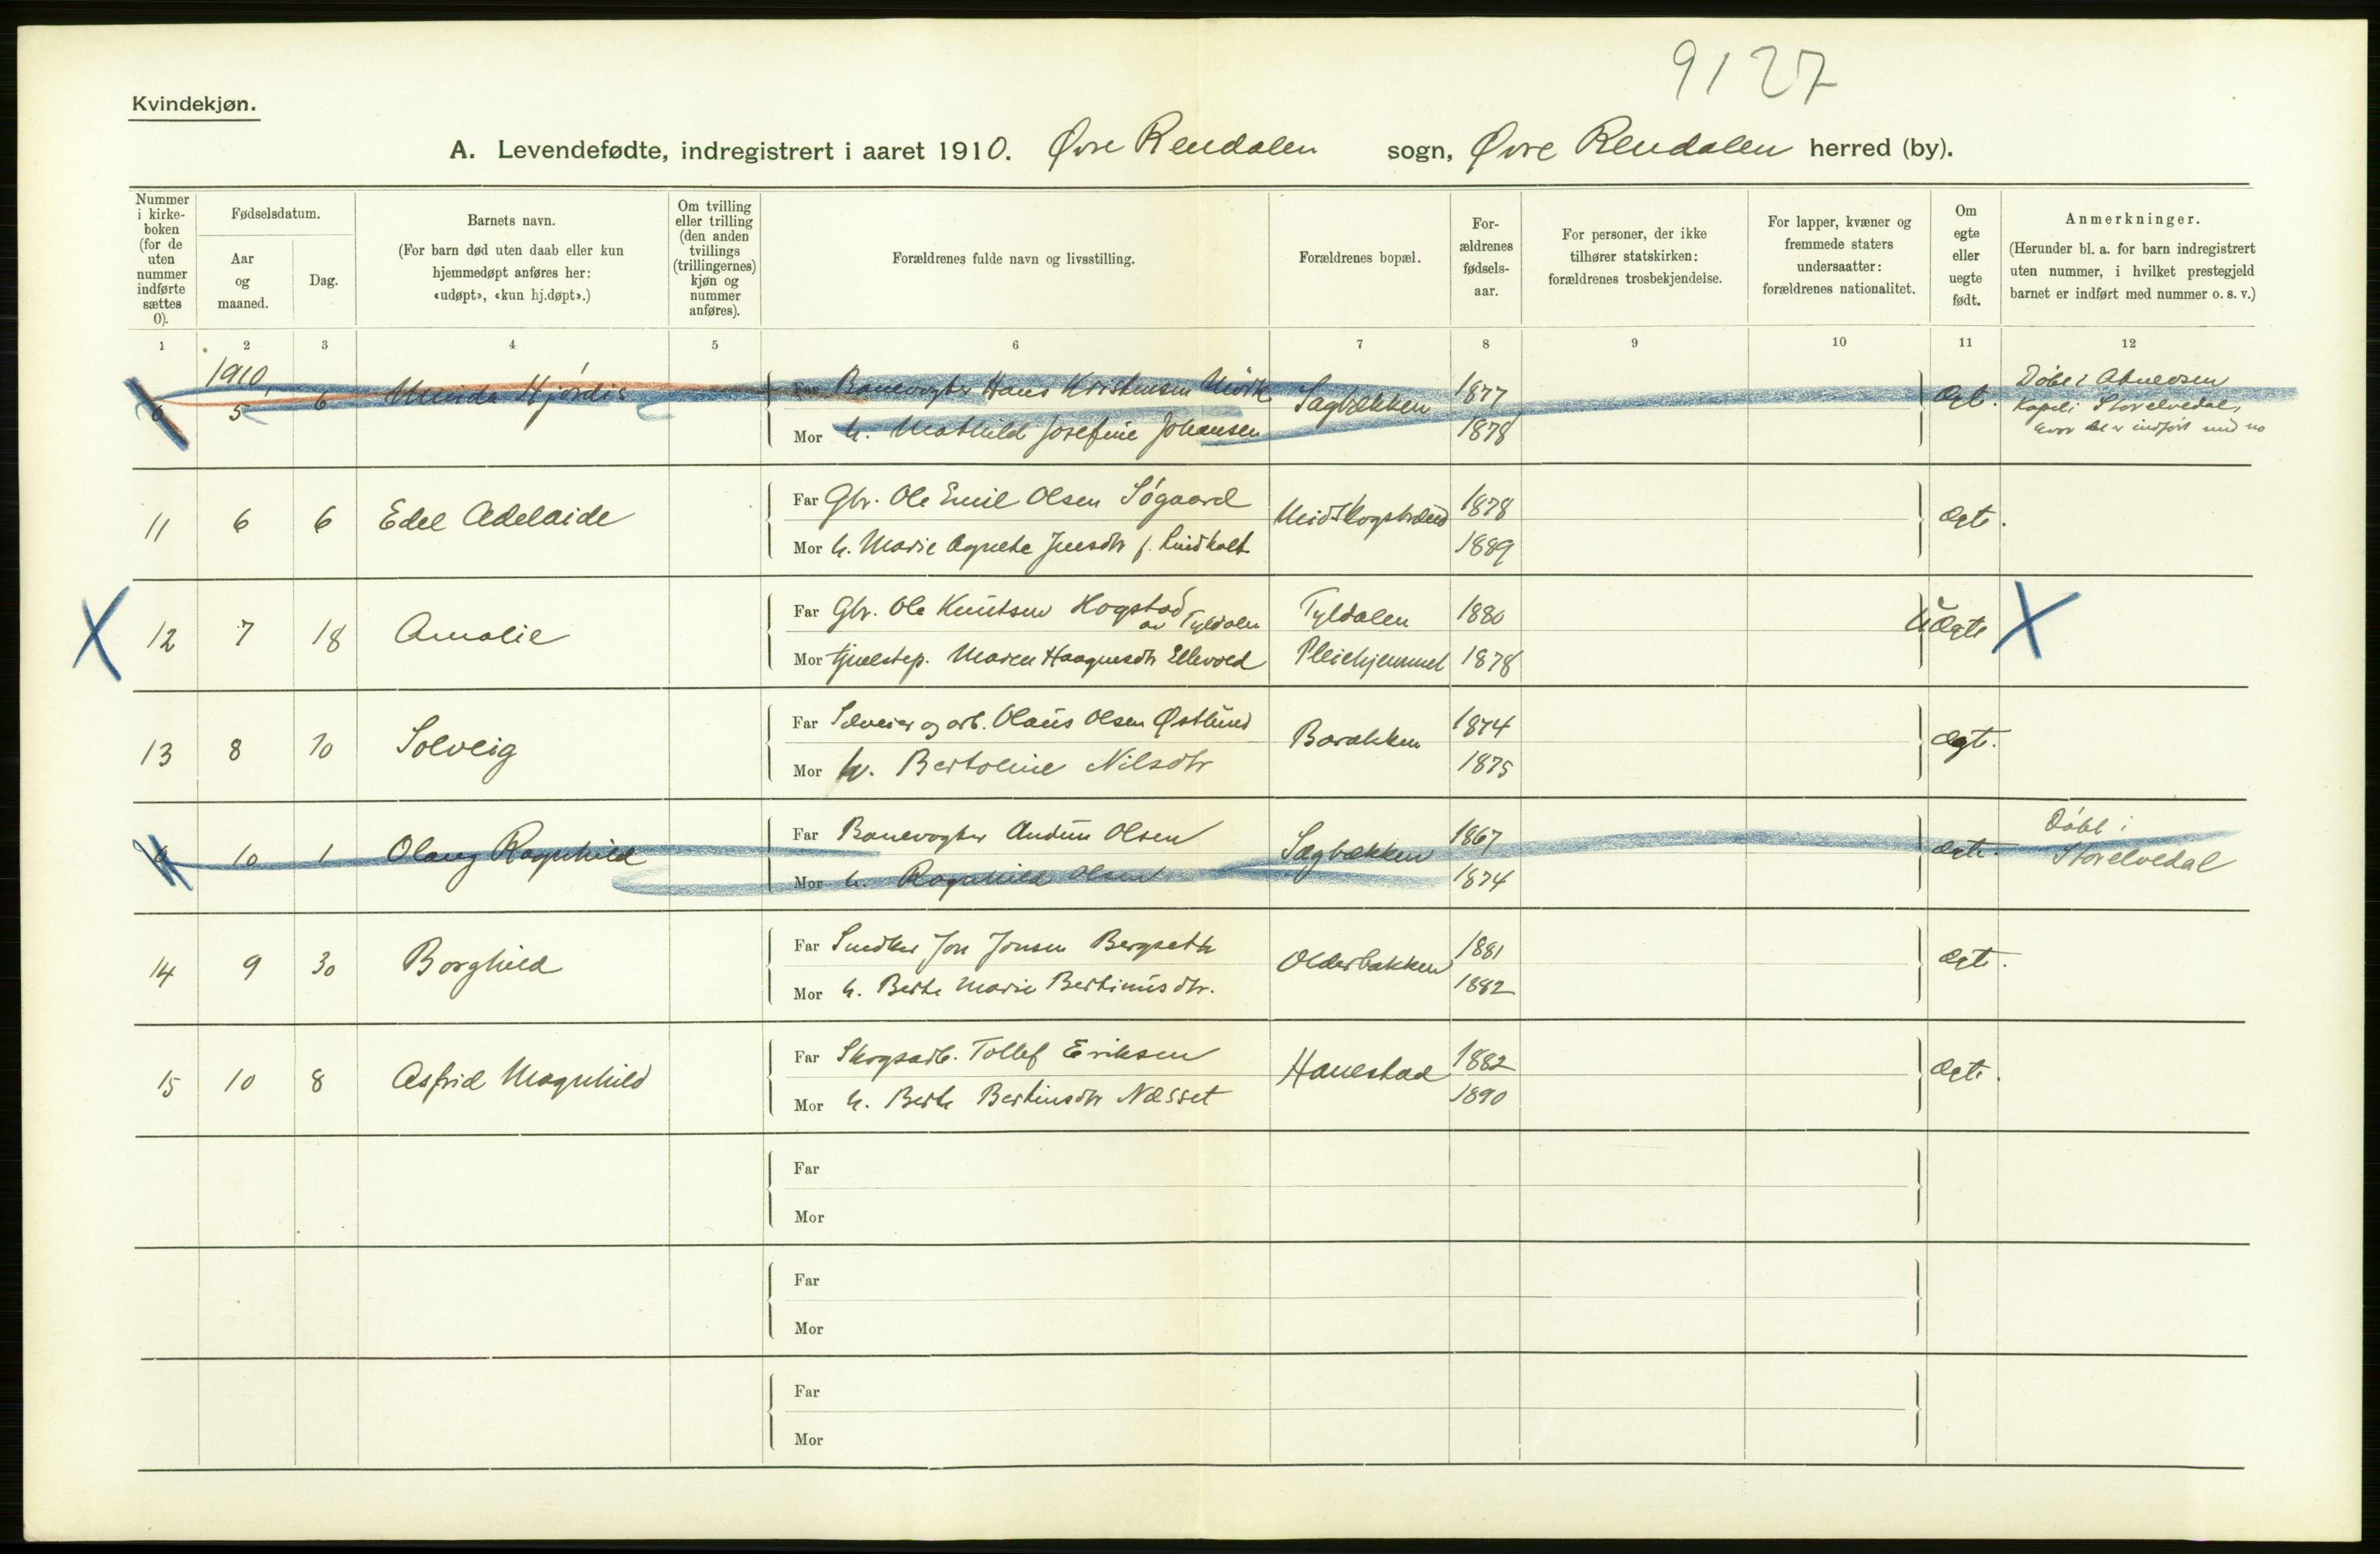 9127
Kvindekjøn.
A. Levendefødte, indregistrert i aaret 1910. Øvre Rendalen sogn, Øvre Rendalen herred (by).
Nummer i kirke-boken (for de uten nummer indførte sættes 0).
Fødselsdatum.
Aar og maaned.
Dag.
Barnets navn.
(For barn død uten daab eller kun hjemmedøpt anføres her: «udøpt», «kun hj.døpt».)
Om tvilling eller trilling (den anden tvillings (trillingernes) kjøn og nummer anføres).
Forældrenes fulde navn og livsstilling.
Forældrenes bopæl.
For-ældrenes fødsels-aar.
For personer, der ikke tilhører statskirken: forældrenes trosbekjendelse.
For lapper, kvæner og fremmede staters undersaatter: forældrenes nationalitet.
Om egte eller uegte født.
Anmerkninger.
(Herunder bl. a. for barn indregistrert uten nummer, i hvilket prestegjeld barnet er indført med nummer o. s. v.)
1 2 3 4 5 6 7 8 9 10 11 12
1910
0 5 6 Hjørdis Far Banevogter Hans Kristensen Sagbækken 1877 Ægt. Døbt i Atneosen
Mor h. Mathild Josefine Johansen 1878 Kapel i Storelvedal, hvor det er indført med no
11 6 6 Edel Adelaide Far Gbr. Ole Emil Olsen Søgaard Midtskogstrand 1878 Ægte.
Mor h. Marie Agnete Jensdtr f. Lindholt 1889
X 12 7 18 Amalie Far Gbr. Ole Knutsen Hogstad av Tyldalen Tyldalen 1880 Uægte X
Mor tjenestep. Maren Haagnesdtr Ellevold Pleiehjemmet 1878
13 8 10 Solveig Far Selveier og arb. Olaus Olsen Østlund Barakken 1874 Ægt.
Mor h. Bertoline Nilsdtr 1875
0 10 1 Olaug Ragnhild Far Banevogter Audun Olsen Sagbækken 1867 Ægte. Døbt i
Mor h. Ragnhild Olsen 1874 Storelvedal
14 9 30 Borghild Far Snedker Jon Jonsen Bergseth Olderbakken 1881 Ægte.
Mor h. Berte Marie Bertinusdtr. 1882
15 10 8 Asfrid Magnhild Far Skogsarb. Tollef Eriksen Hanestad 1882 Ægte.
Mor h. Berte Bertinsdtr Næsset 1890
Far
Mor
Far
Mor
Far
Mor